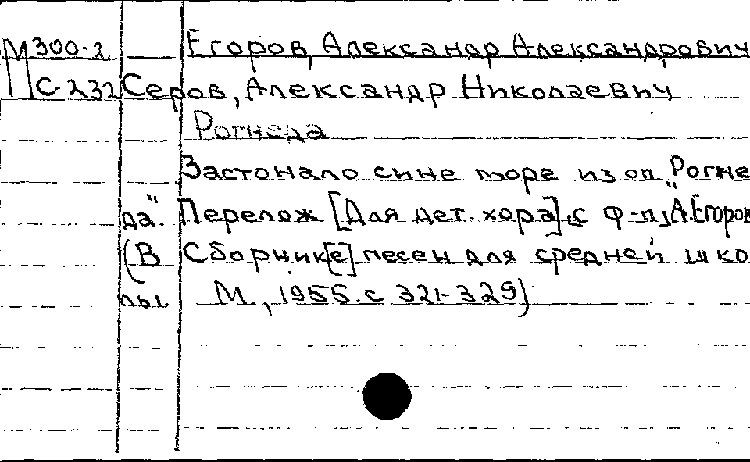 М300-2 Егоров, Александр Александрович
С-232 Серов, Александр Николаевич
Рогнеда
Застонало сине море из оп. „Рогне
да". Перелож [Для дет. хора], с ф-п, А.Егоров
(В Сборник[е] песен для средней шко
лы М., 1955. с 321-329)